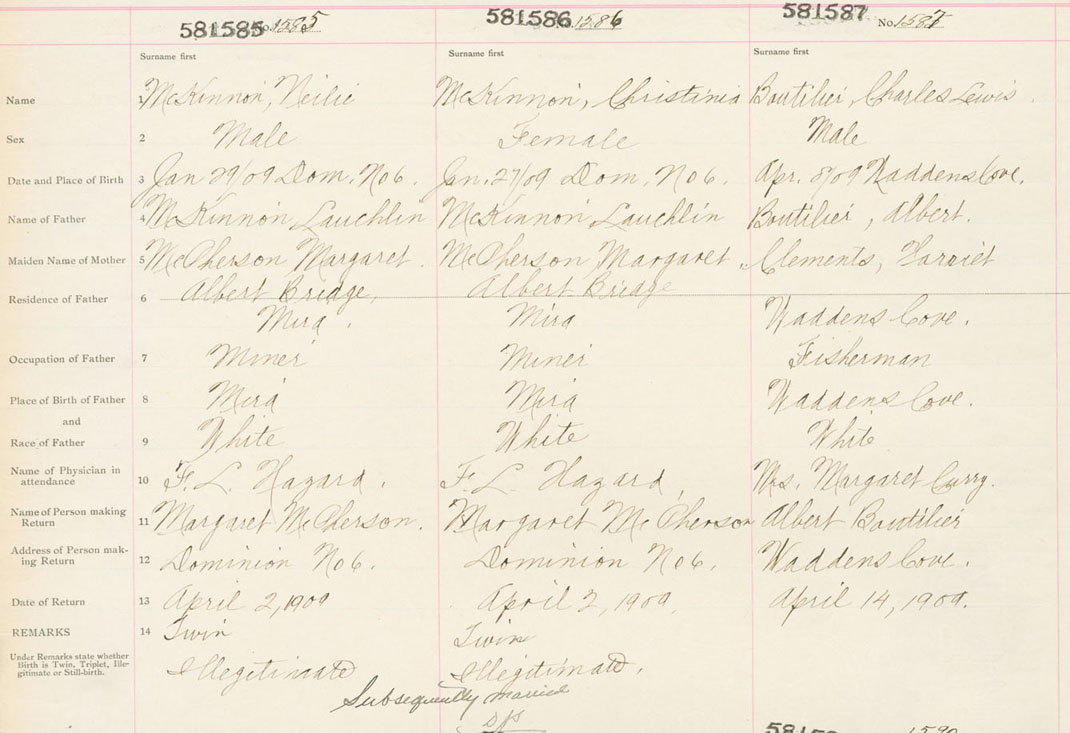 581585 No. 1585 581586 1586 581587 No. 1587
Surname first Surname first Surname first
Name 1 McKinnon, Neilie McKinnon, Christinia Boutilier, Charles Lewis.
Sex 2 Male Female Male
Date and Place of Birth 3 Jan 29/09 Dom. No 6. Jan. 27/09 Dom. No 6. Apr. 8/09 Waddens Cove.
Name of Father 4 McKinnon, Lauchlin McKinnon Lauchlin Boutilier, Albert.
Maiden Name of Mother 5 McPherson Margaret. McPherson Margaret. Clements, Harriet
Albert Bridge, Albert Bridge
Residence of Father 6 Mira. Mira Waddens Cove.
Occupation of Father 7 Miner Miner Fisherman
Place of Birth of Father 8 Mira Mira Waddens Cove.
and
Race of Father 9 White White White
Name of Physician in
attendance 10 F. L. Hazard. F. L. Hazard, Mrs. Margaret Curry.
Name of Person making
Return 11 Margaret McPherson. Margaret McPherson Albert Boutilier
Address of Person mak-
ing Return 12 Dominion No 6. Dominion No 6. Waddens Cove.
Date of Return 13 April 2, 1909 April 2, 1909. April 14, 1909.
REMARKS 14 Twin Twin
Under Remarks state whether
Birth is Twin, Triplet, Ille-
gitimate or Still-birth.
Illegitimate Illegitimate.
Subsequently married
1590